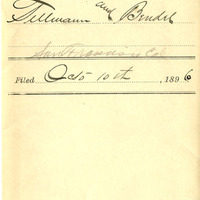 Tillmann and Bendel
San Francisco Cal
Filed Oct. 10th, 1896